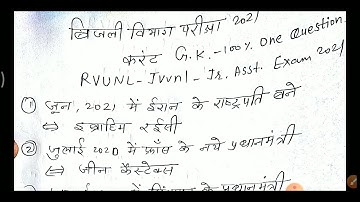 बिजली विभाग परीक्षा 2021
करंट G.K. - 100% One Question.
RVUNL - JVVNL - Jr. Asst. Exam 2021
① जून, 2021 में ईरान के राष्ट्रपति बने
⇔ इब्राहिम रईसी
② जुलाई 2020 में फ्रांस के नये प्रधानमंत्री
⇔ जीन कैस्टेक्स
के प्रधानमंत्री